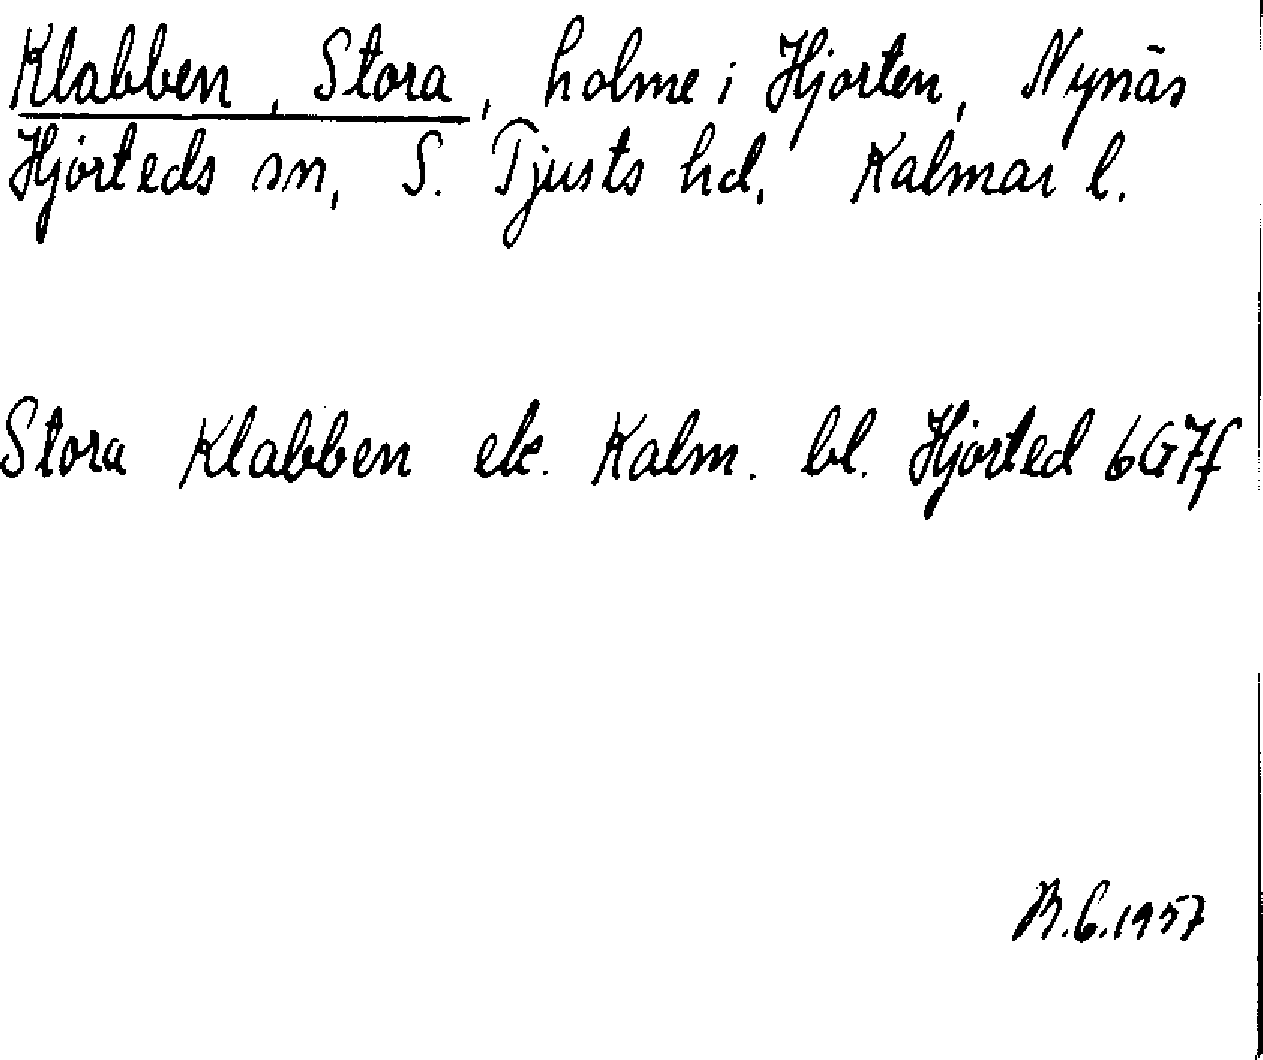 Klabben, Stora, holme i Hjorten, Nynäs
Hjorteds sn, S. Tjusts hd. Kalmar l.
Stora Klabben ek. Kalm. bl. Hjorted 6G7f
B.G.1957